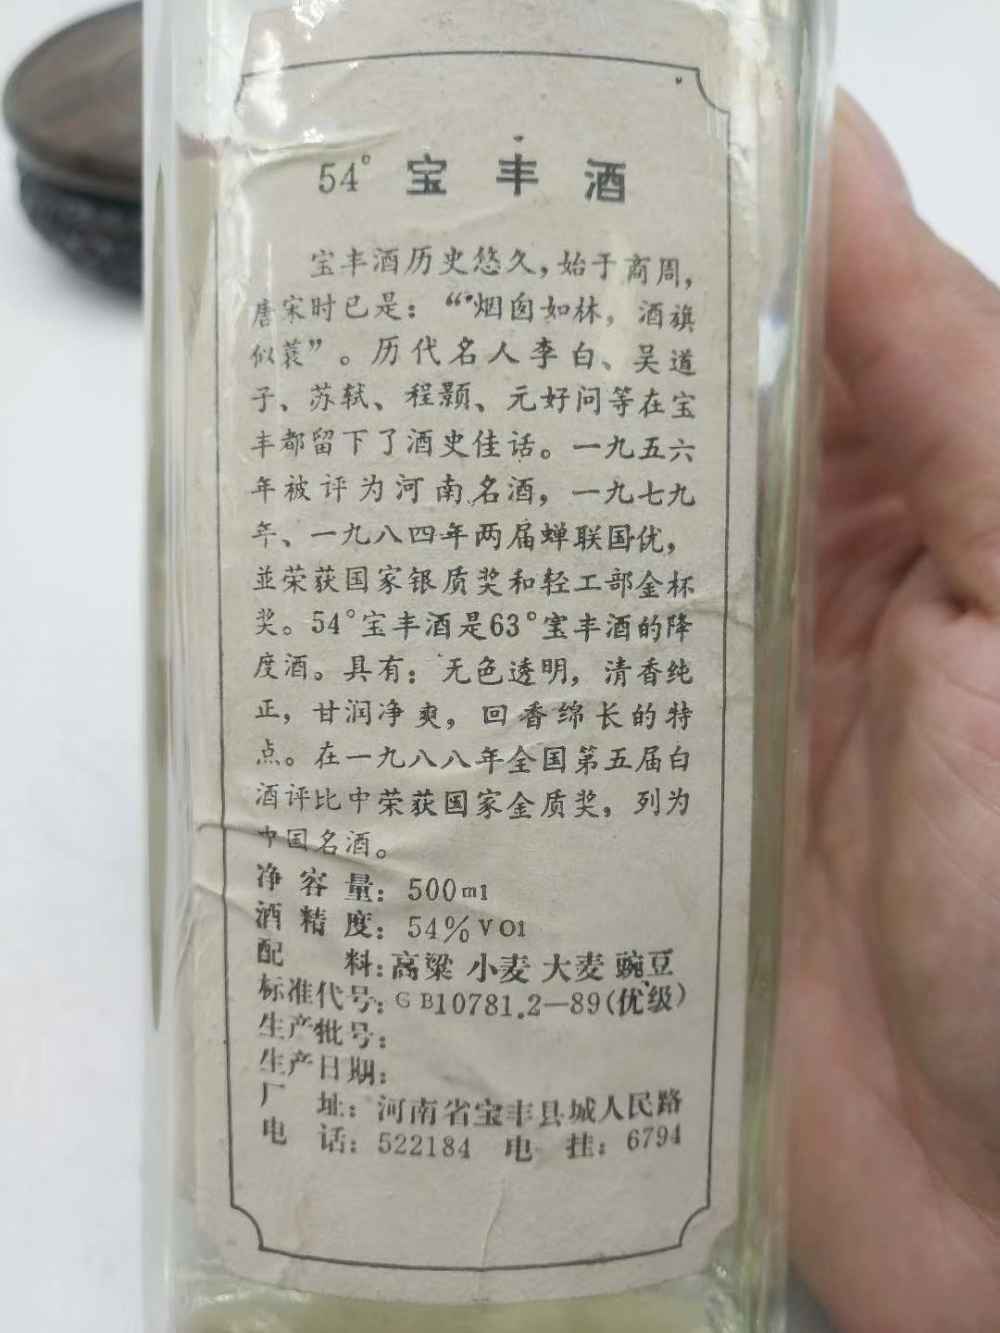 54° 宝丰酒
宝丰酒历史悠久，始于商周，
唐宋时已是：“烟囱如林，酒旗
似蓑”。历代名人李白、吴道
子、苏轼、程颢、元好问等在宝
丰都留下了酒史佳话。一九五六
年被评为河南名酒，一九七九
年、一九八四年两届蝉联国优，
並荣获国家银质奖和轻工部金杯
奖。54°宝丰酒是63°宝丰酒的降
度酒。具有：无色透明，清香纯
正，甘润净爽，回香绵长的特
点。在一九八八年全国第五届白
酒评比中荣获国家金质奖，列为
中国名酒。
净容量：500ml
酒精度：54%VOl
配料：高粱 小麦 大麦 豌豆
标准代号：GB10781.2—89(优级)
生产批号：
生产日期：
厂址：河南省宝丰县城人民路
电话：522184 电挂：6794